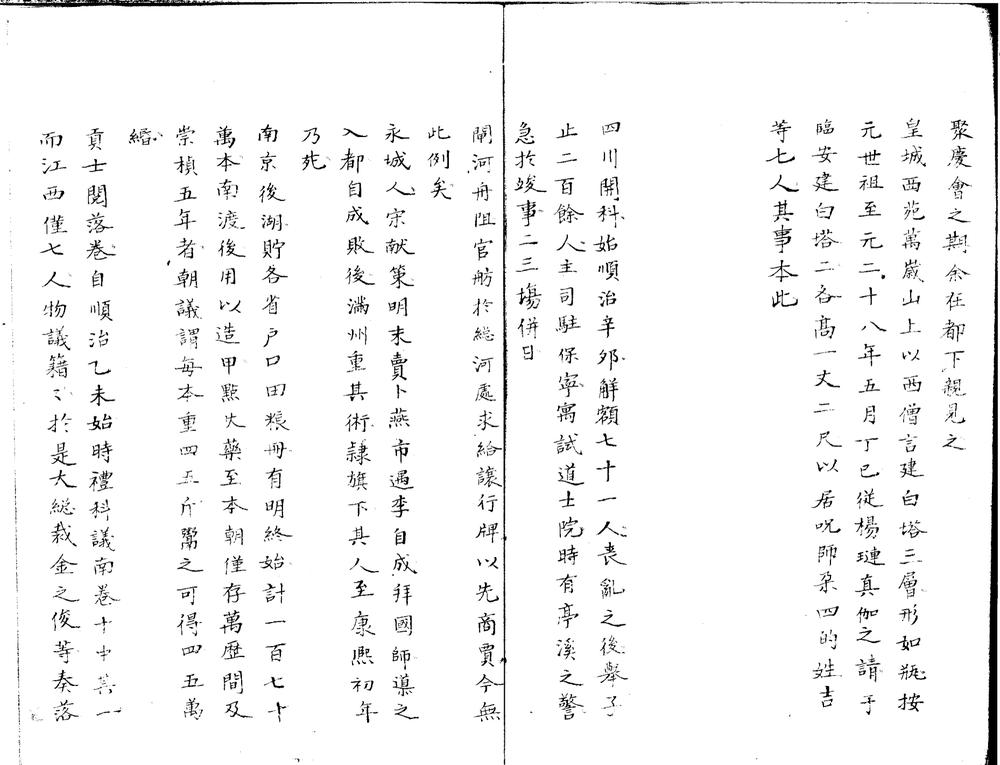 聚慶會之期余在都下親見之
皇城西苑萬嵗山上以西僧言建白塔三層形如瓶按
元世祖至元二十八年五月丁巳從楊璉真伽之請于
臨安建白塔二各髙一丈二尺以居呪師朶四的姓吉
等七人其事本此
四川開科始順治辛夘解額七十一人喪亂之後舉子
止二百餘人主司駐保寧寓試道士院時有亭溪之警
急於竣事二三塲併日
閘河舟阻官舫於総河處求給讓行牌以先商賈今無
此例矣
永城人宋献策明末賣卜燕市遇李自成拜國師導之
入都自成敗後滿州重其術隷旗下其人至康熈初年
乃死
南京後湖貯各省戶口田粮冊有明終始計一百七十
萬本南渡後用以造甲㸃火藥至本朝僅存萬歴間及
崇楨五年者朝議謂每本重四五斤鬻之可得四五萬
緡
貢士閱落卷自順治乙未始時禮科議南卷十中其一
而江西僅七人物議籍〻於是大総裁金之俊等奏落